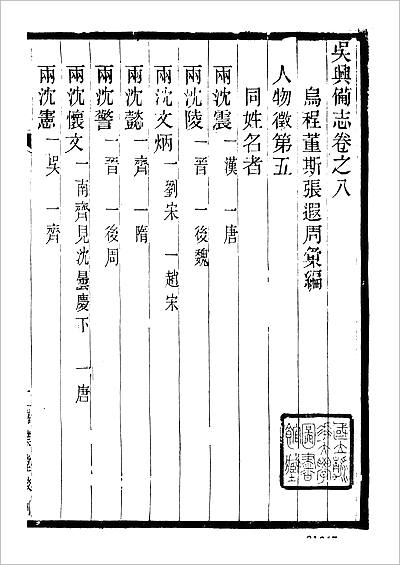 吳興備志卷之八
烏程董斯張遐周彙編
人物徵第五
同姓名者
兩沈震 一漢 一唐
兩沈陵 一晉 一後魏
兩沈文炳 一劉宋 一趙宋
兩沈懿 一齊 一隋
兩沈警 一晉 一後周
兩沈懷文 一南齊見沈曇慶下 一唐
兩沈憲 一吳 一齊